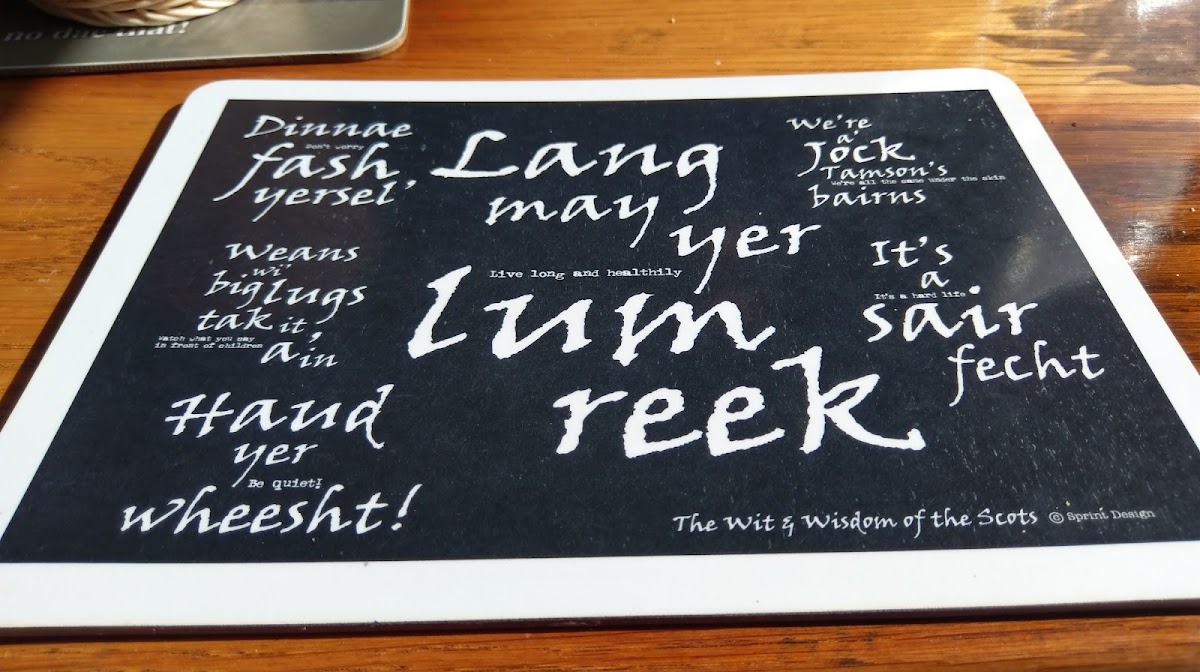 no dae that!
Dinnae
Don't worry
fash
yersel'
Lang
may
yer
Live long and healthily
lum
reek
We're
a'
Jock
Tamson's
We're all the same under the skin
bairns
Weans
wi'
big lugs
tak it
Watch what you say
in front of children
a' in
It's
a
It's a hard life
sair
fecht
Haud
yer
Be quiet!
wheesht!
The Wit & Wisdom of the Scots © Sprint Design